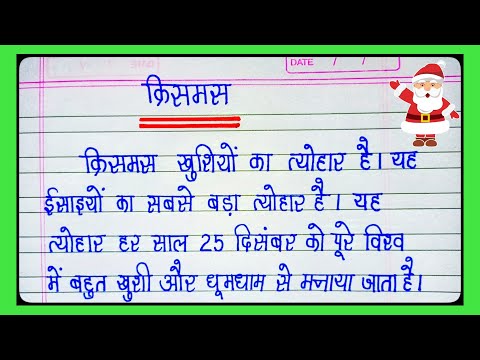 DATE / /
क्रिसमस
क्रिसमस खुशियों का त्योहार है। यह
ईसाइयों का सबसे बड़ा त्योहार है। यह
त्योहार हर साल 25 दिसंबर को पूरे विश्व
में बहुत खुशी और धूमधाम से मनाया जाता है।